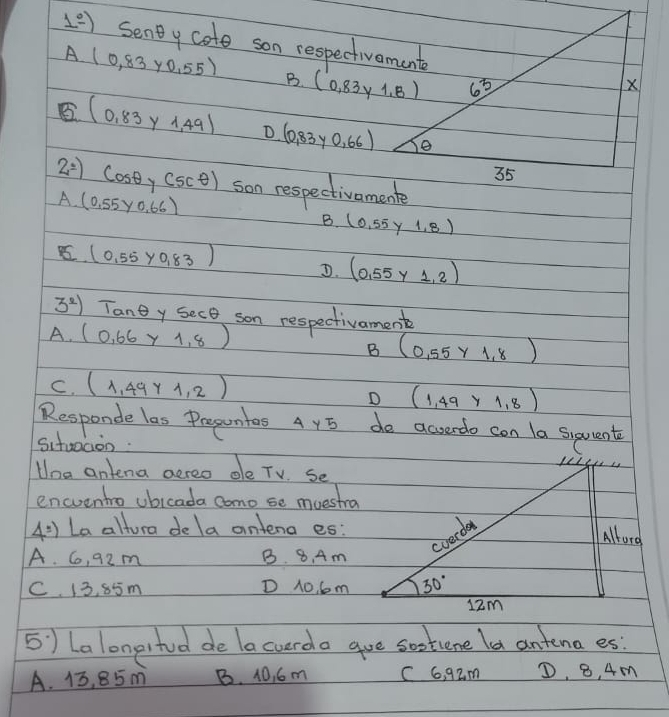 1º) Senθ y Cotθ son respectivamente
A (0,83 y 0,55)
B. (0,83 y 1,8)
63
x
(0,83 y 1,49)
D. (0,83 y 0,66)
θ
35
2º) Cosθ y Cscθ) son respectivamente
A. (0,55 y 0,66)
B. (0,55 y 1,8)
(0,55 y 0,83)
D. (0,55 y 1,2)
3º) Tanθ y Secθ son respectivamente
A. (0,66 y 1,8)
B (0,55 y 1,8)
C. (1,49 y 1,2)
D (1,49 y 1,8)
Responde las Preguntas 4 y 5 de acuerdo con la siguiente
situación:
Una antena aereo de TV. se
encuentra ubicada como se muestra
4º) La altura de la antena es:
A. 6,92 m
B. 8,4m
C. 13,85m
D 10,6m
cuerda
Altura
30°
12m
5º) La longitud de la cuerda que sostiene la antena es:
A. 13,85m
B. 10,6m
C 6,92m
D. 8,4m